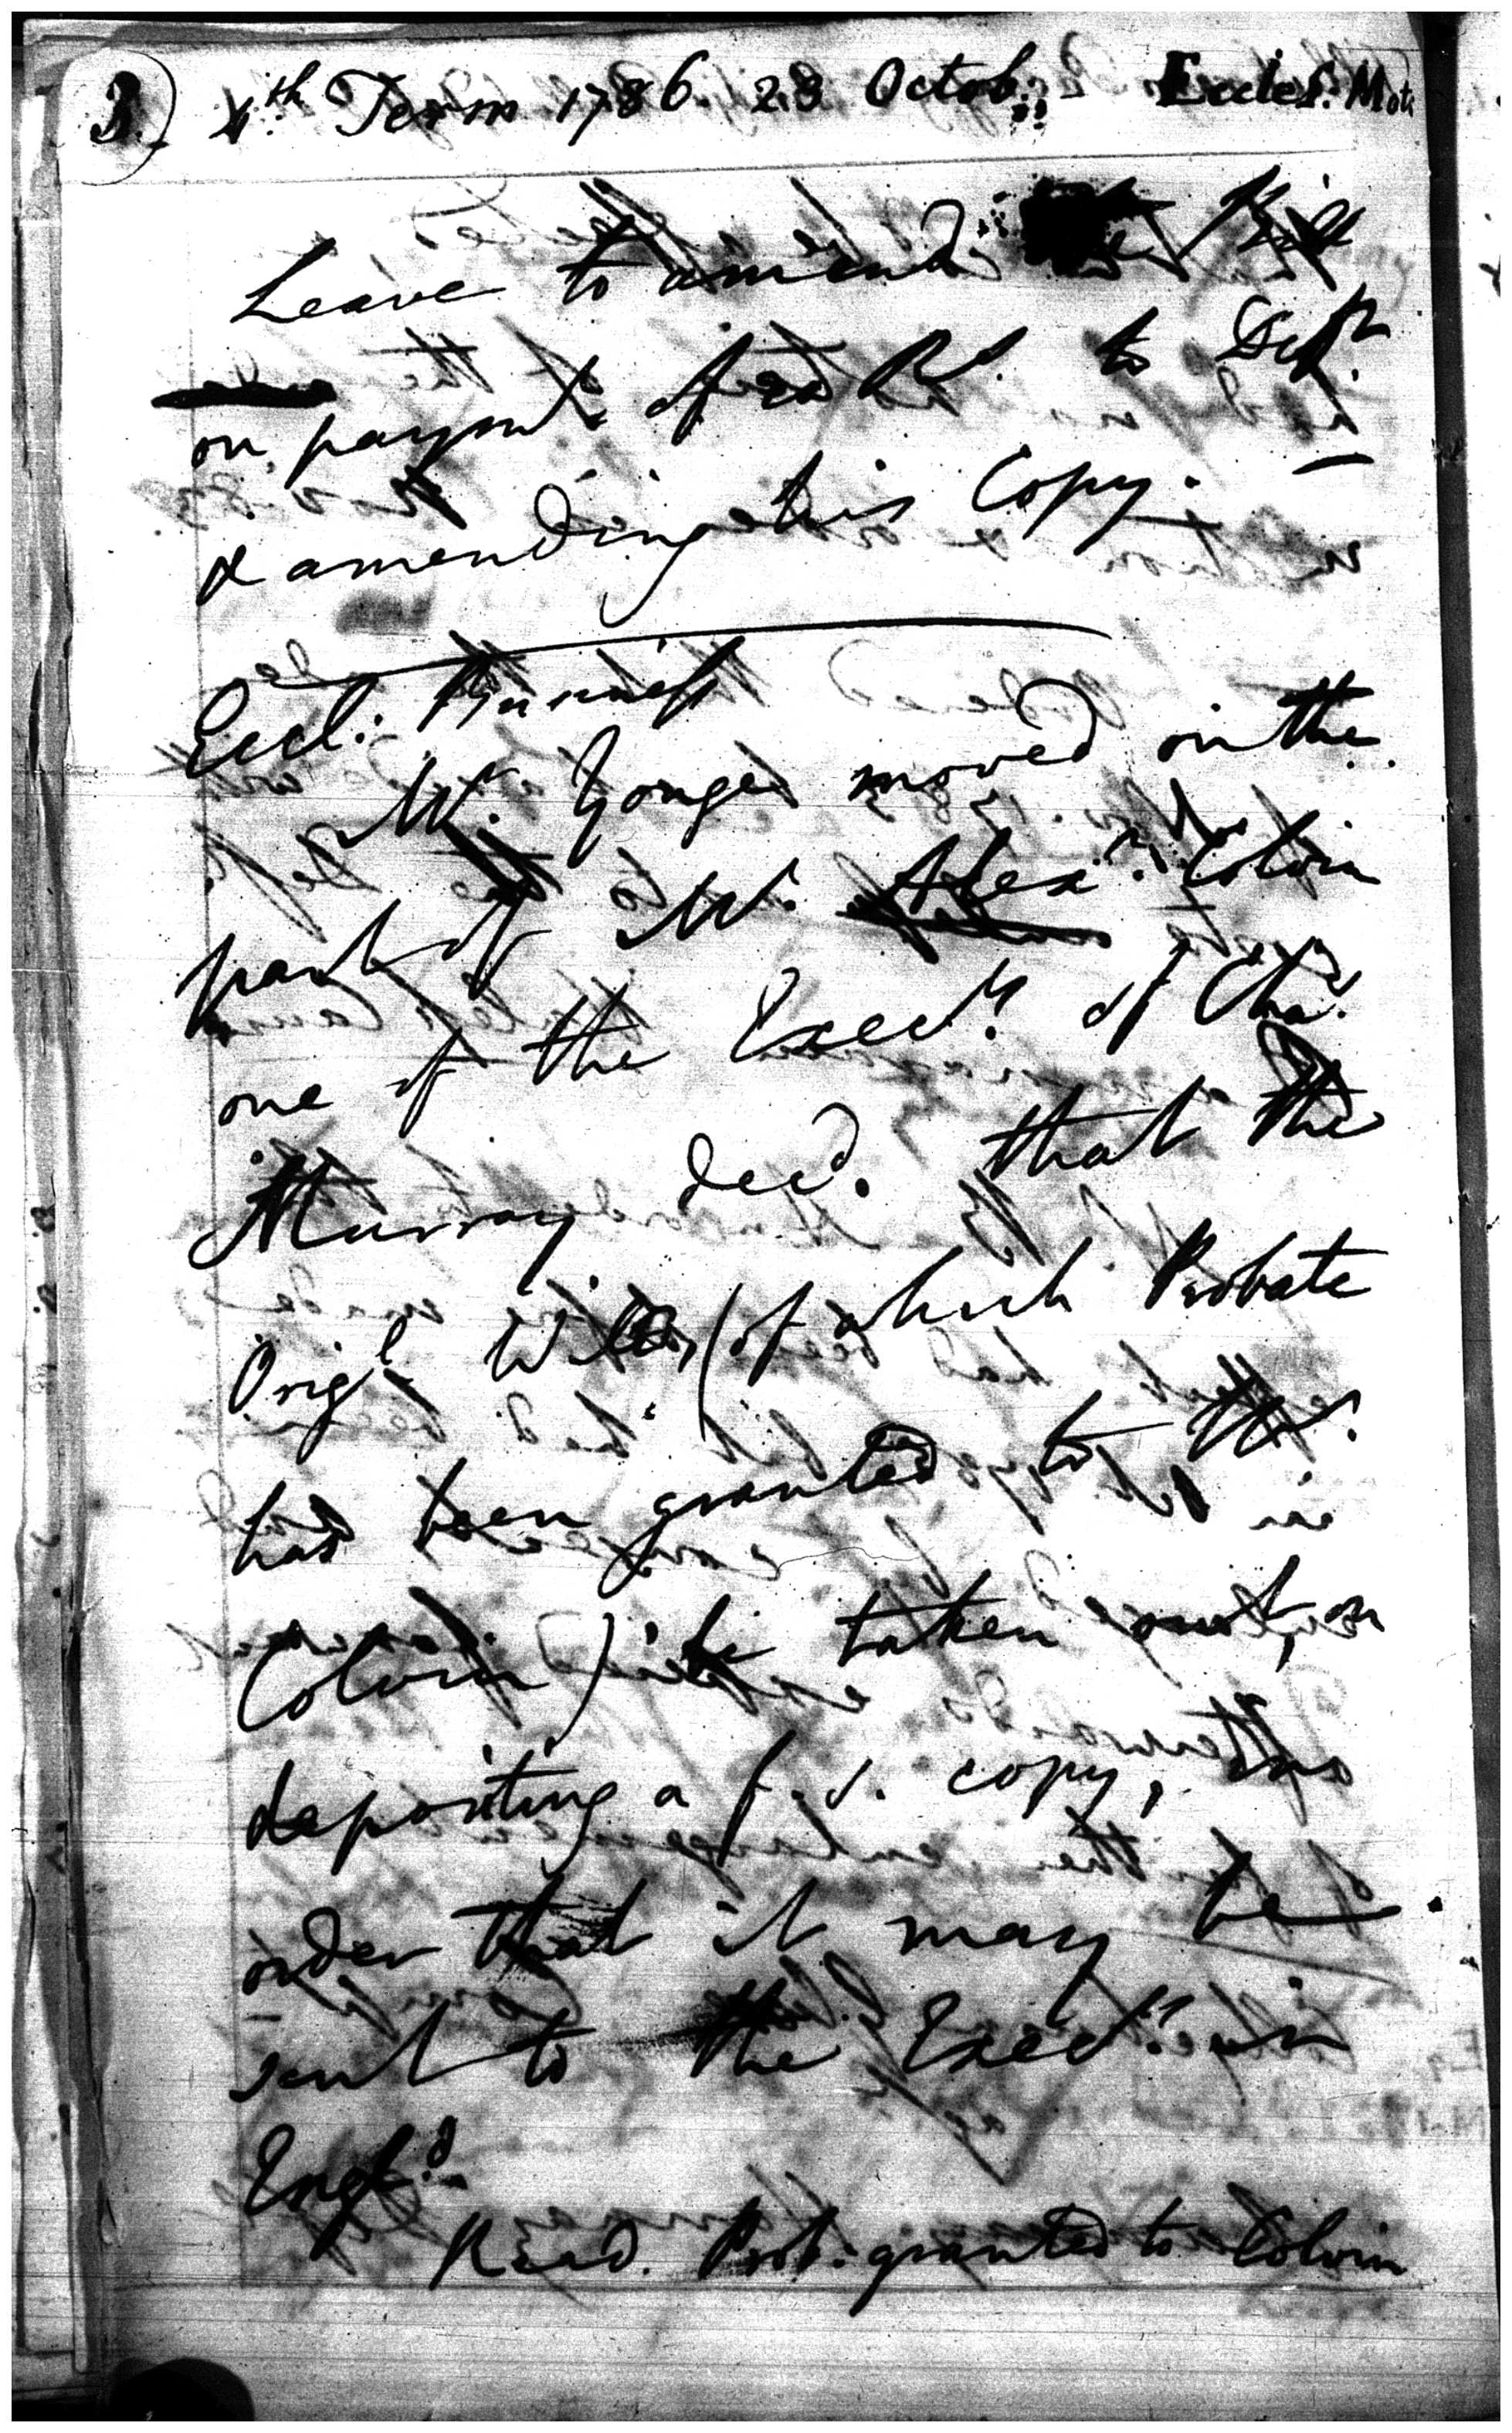 3.) 4th. Term 1786 23 Octob: - Eccles. Mot
Leave to amend the Bill
on paymt. of Rs. to Deft.
& amending his Copy. —
Eccl: Business
Mr. Yonge moved on the
part of Mr. Alexr. Colvin
one of the Execrs. of Chas.
Murray decd. that the
Origl. Will (of which Probate
has been granted to Mr.
Colvin) be taken out, on
depositing a f. s. copy, in
order that it may be
sent to the Execrs. in
Engld.
Read. Prob: granted to Colvin